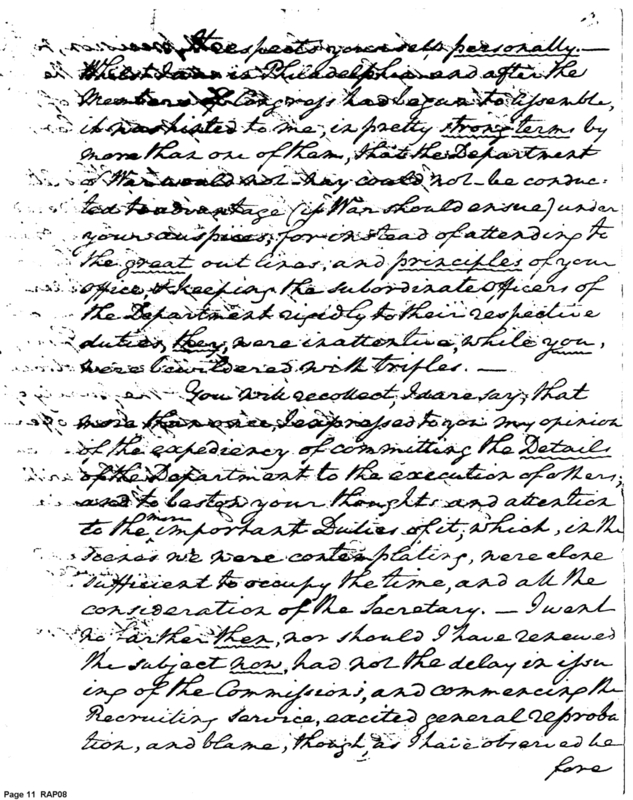 it respects yourself personally.—
Whilst I was in Philadelphia and after the
Members of Congress had begun to assemble,
it was hinted to me, in pretty strong terms by
more than one of them, that the Department
of War would not—nay could not—be conduc:
ted to advantage (if War should ensue) under
your auspices; for instead of attending to
the great out lines, and principles of your
office & keeping the subordinate Officers of
the Department rigidly to their respective
duties, they, were inattentive, while you,
were bewildered with trifles.—
You will recollect, I dare say, that
more than once, I expressed to you my opinion
of the expediency of committing the Details
of the Department to the execution of others;
and to bestow your thoughts and attention
to the more important Duties of it; which, in the
scenes we were contemplating, were alone
sufficient to occupy the time, and all the
consideration of the Secretary.—I went
no farther then, nor should I have renewed
the subject now, had not the delay in issu
ing of the Commissions, and commencing the
Recruiting service, excited general reproba
tion, and blame, though, as I have observed be
fore
Page 11 RAP08